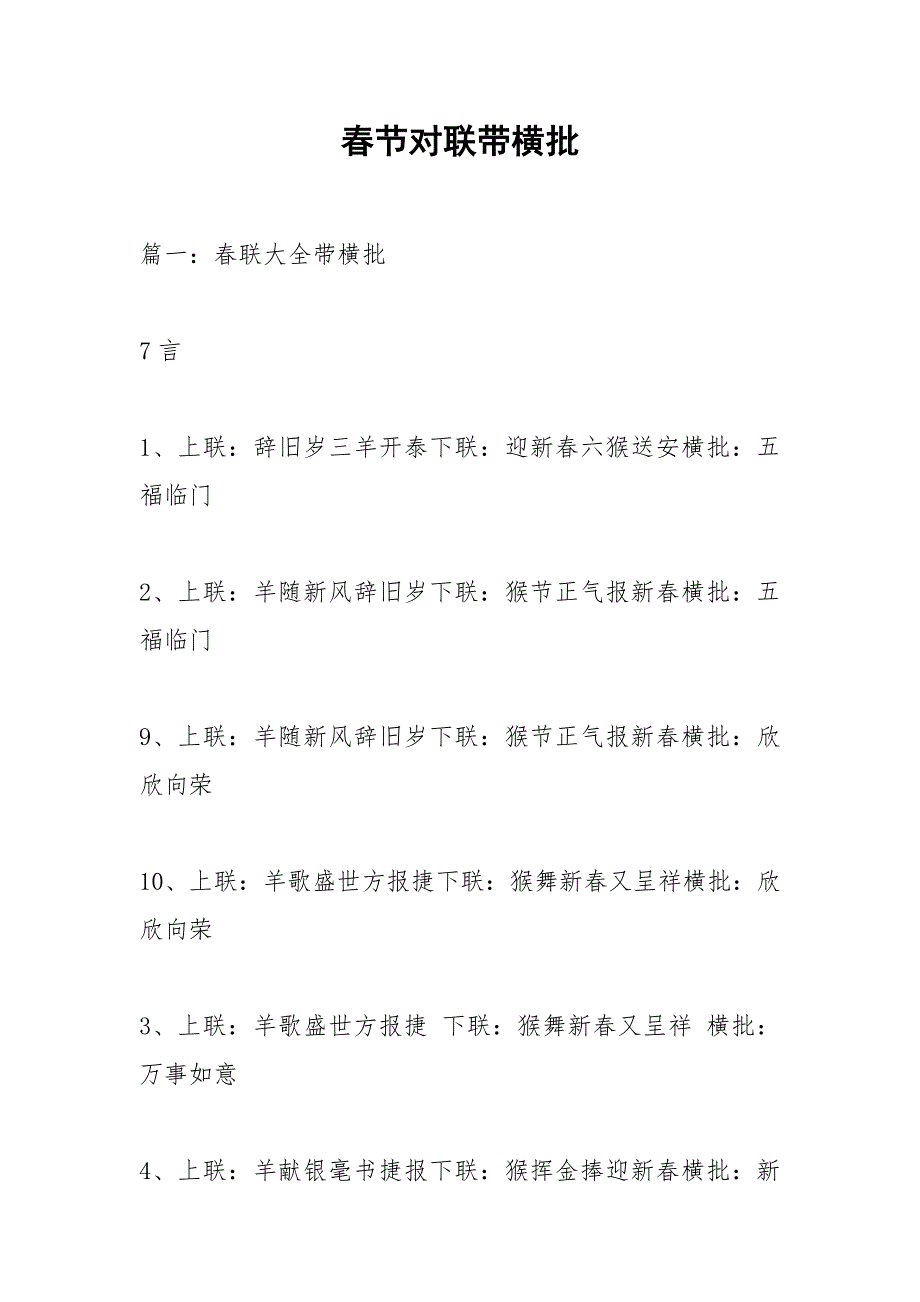 春节对联带横批
篇一：春联大全带横批
7 言
1、上联：辞旧岁三羊开泰下联：迎新春六猴送安横批：五
福临门
2、上联：羊随新风辞旧岁下联：猴节正气报新春横批：五
福临门
9、上联：羊随新风辞旧岁下联：猴节正气报新春横批：欣
欣向荣
10、上联：羊歌盛世方报捷下联：猴舞新春又呈祥横批：欣
欣向荣
3、上联：羊歌盛世方报捷 下联：猴舞新春又呈祥 横批：
万事如意
4、上联：羊献银毫书捷报下联：猴挥金捧迎新春横批：新